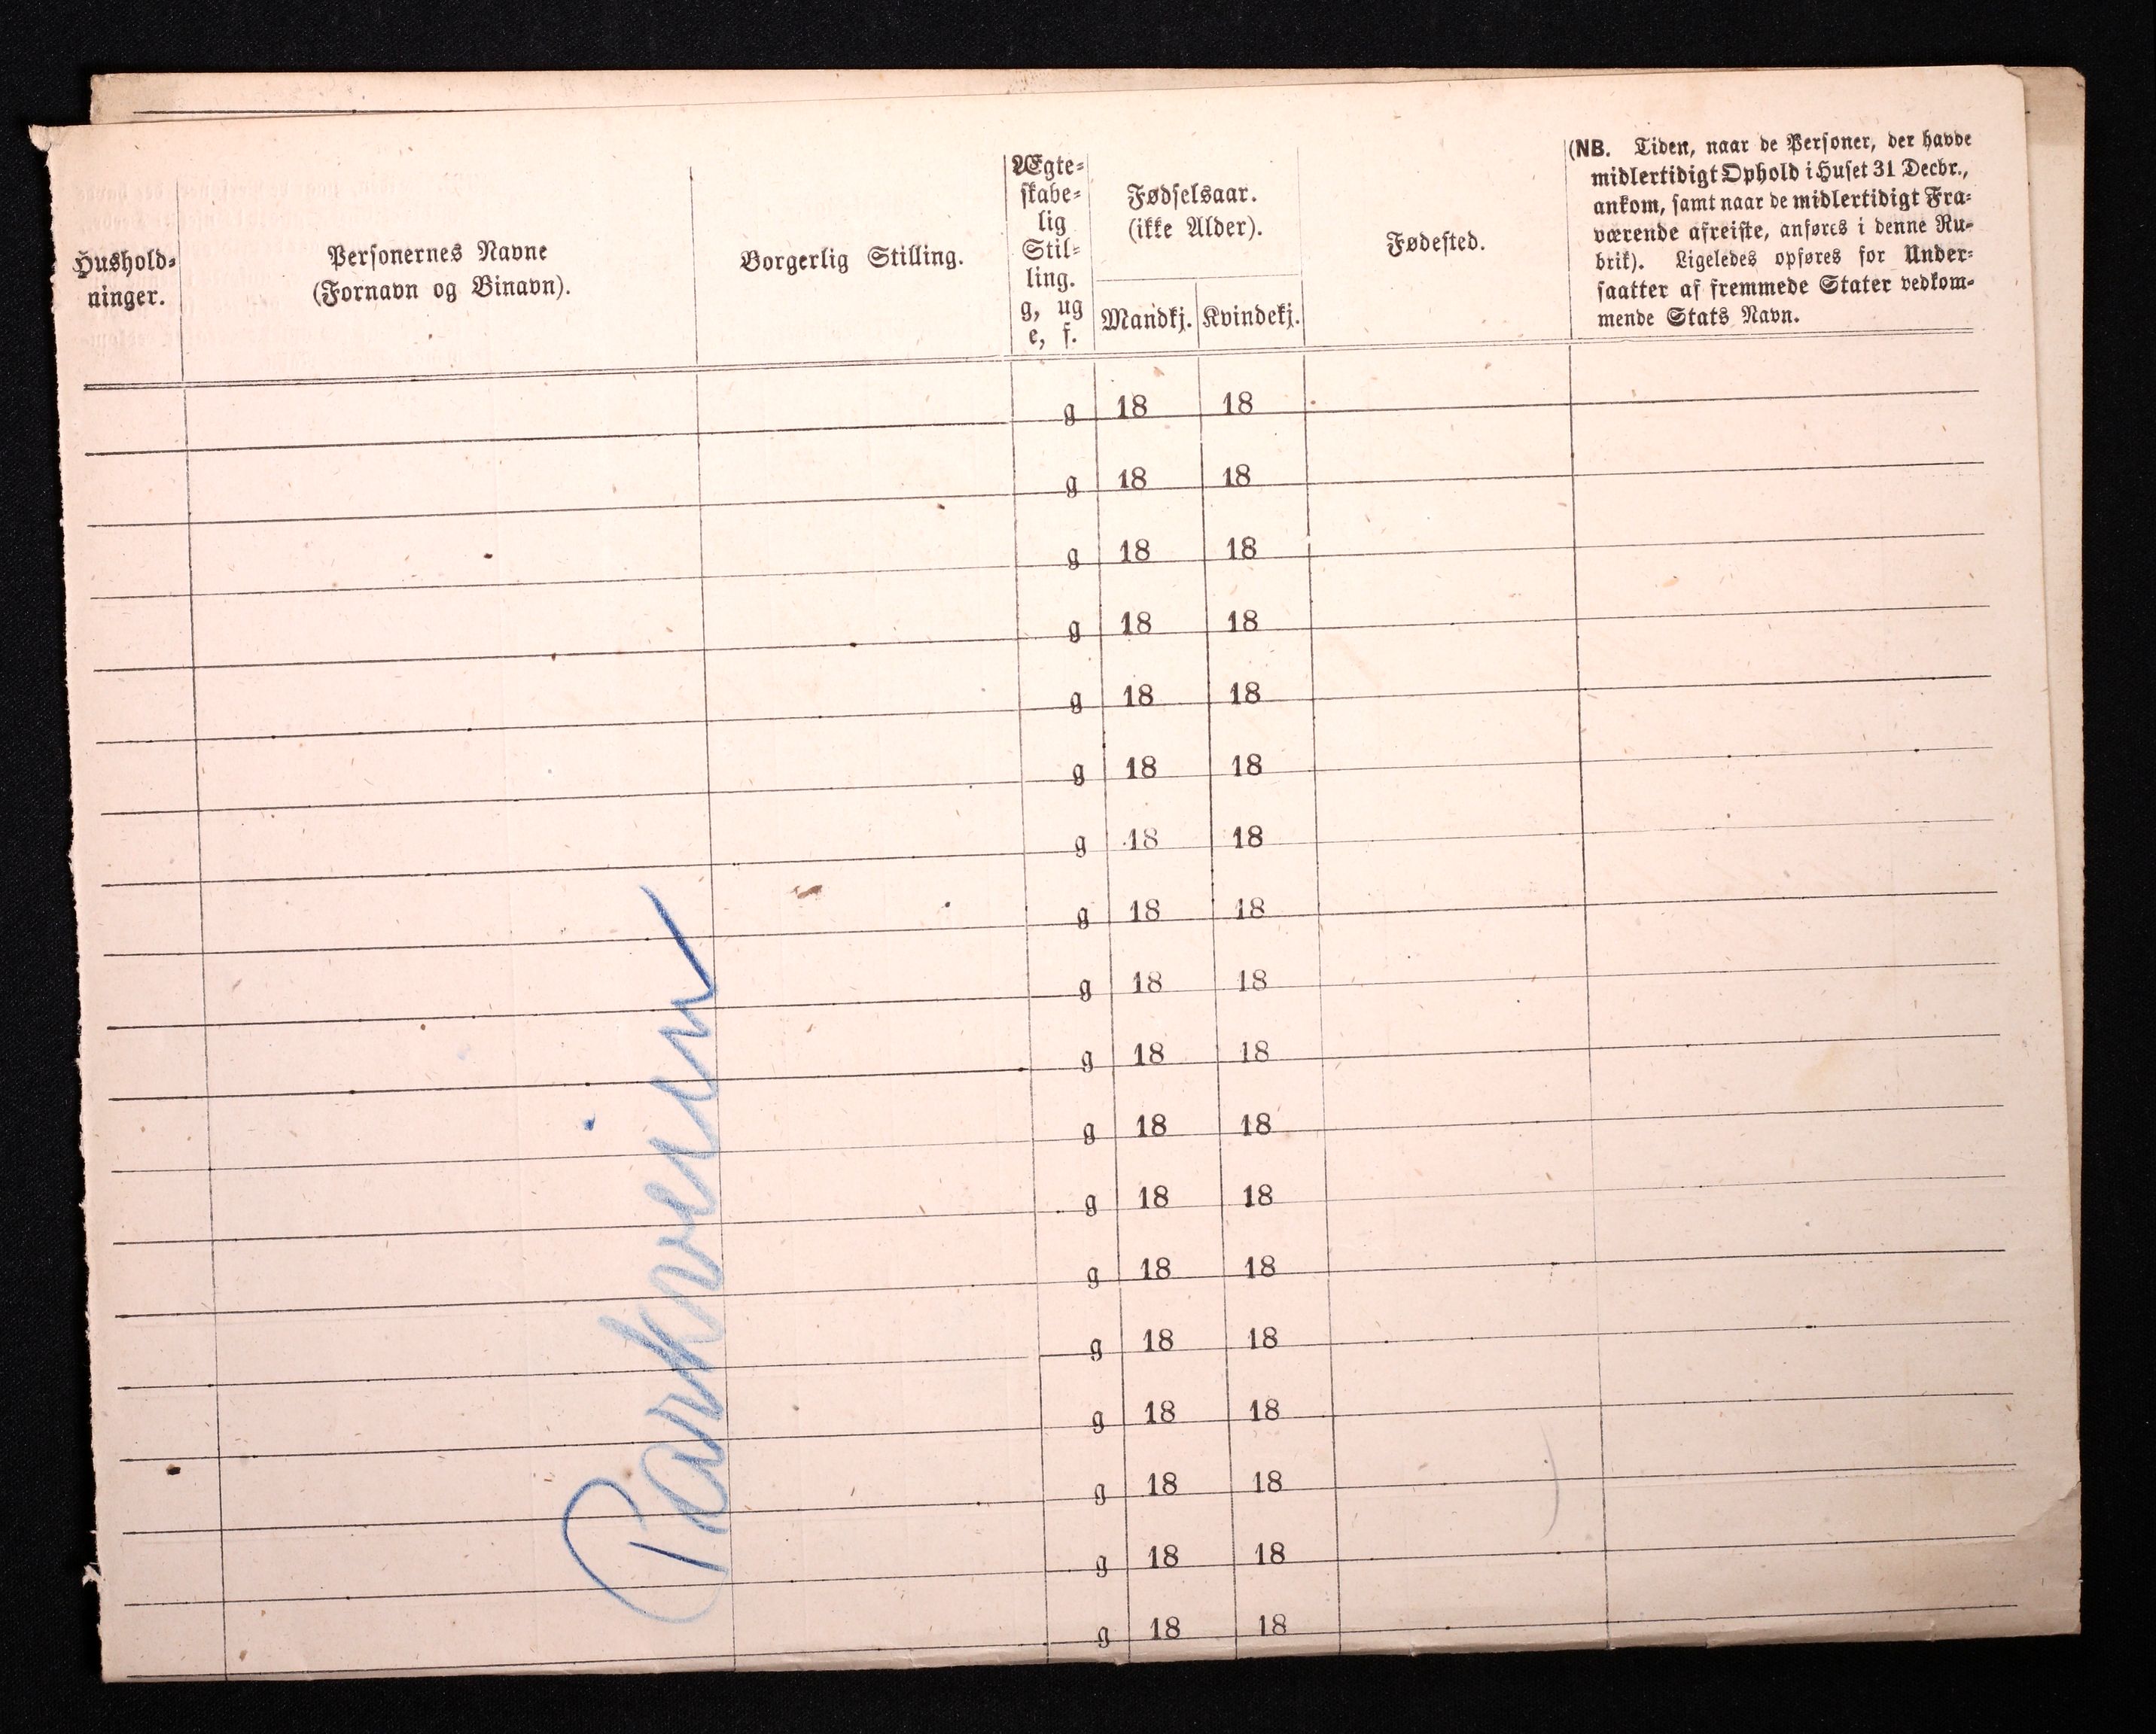 Hushold-
ninger.
Personernes Navne
(Fornavn og Binavn).
Borgerlig Stilling.
Ægte-
skabe-
lig
Stil-
ling.
g, ug
e, f.
Fødselsaar.
(ikke Alder).
Mandkj. Kvindekj.
Fødested.
(NB. Tiden, naar de Personer, der havde
midlertidigt Ophold i Huset 31 Decbr.,
ankom, samt naar de midlertidigt Fra-
værende afreiste, anføres i denne Ru-
brik). Ligeledes opføres for Under-
saatter af fremmede Stater vedkom-
mende Stats Navn.
g 18 18
g 18 18
g 18 18
g 18 18
g 18 18
g 18 18
g 18 18
g 18 18
g 18 18
g 18 18
g 18 18
g 18 18
g 18 18
g 18 18
g 18 18
g 18 18
g 18 18
g 18 18
Parkveien